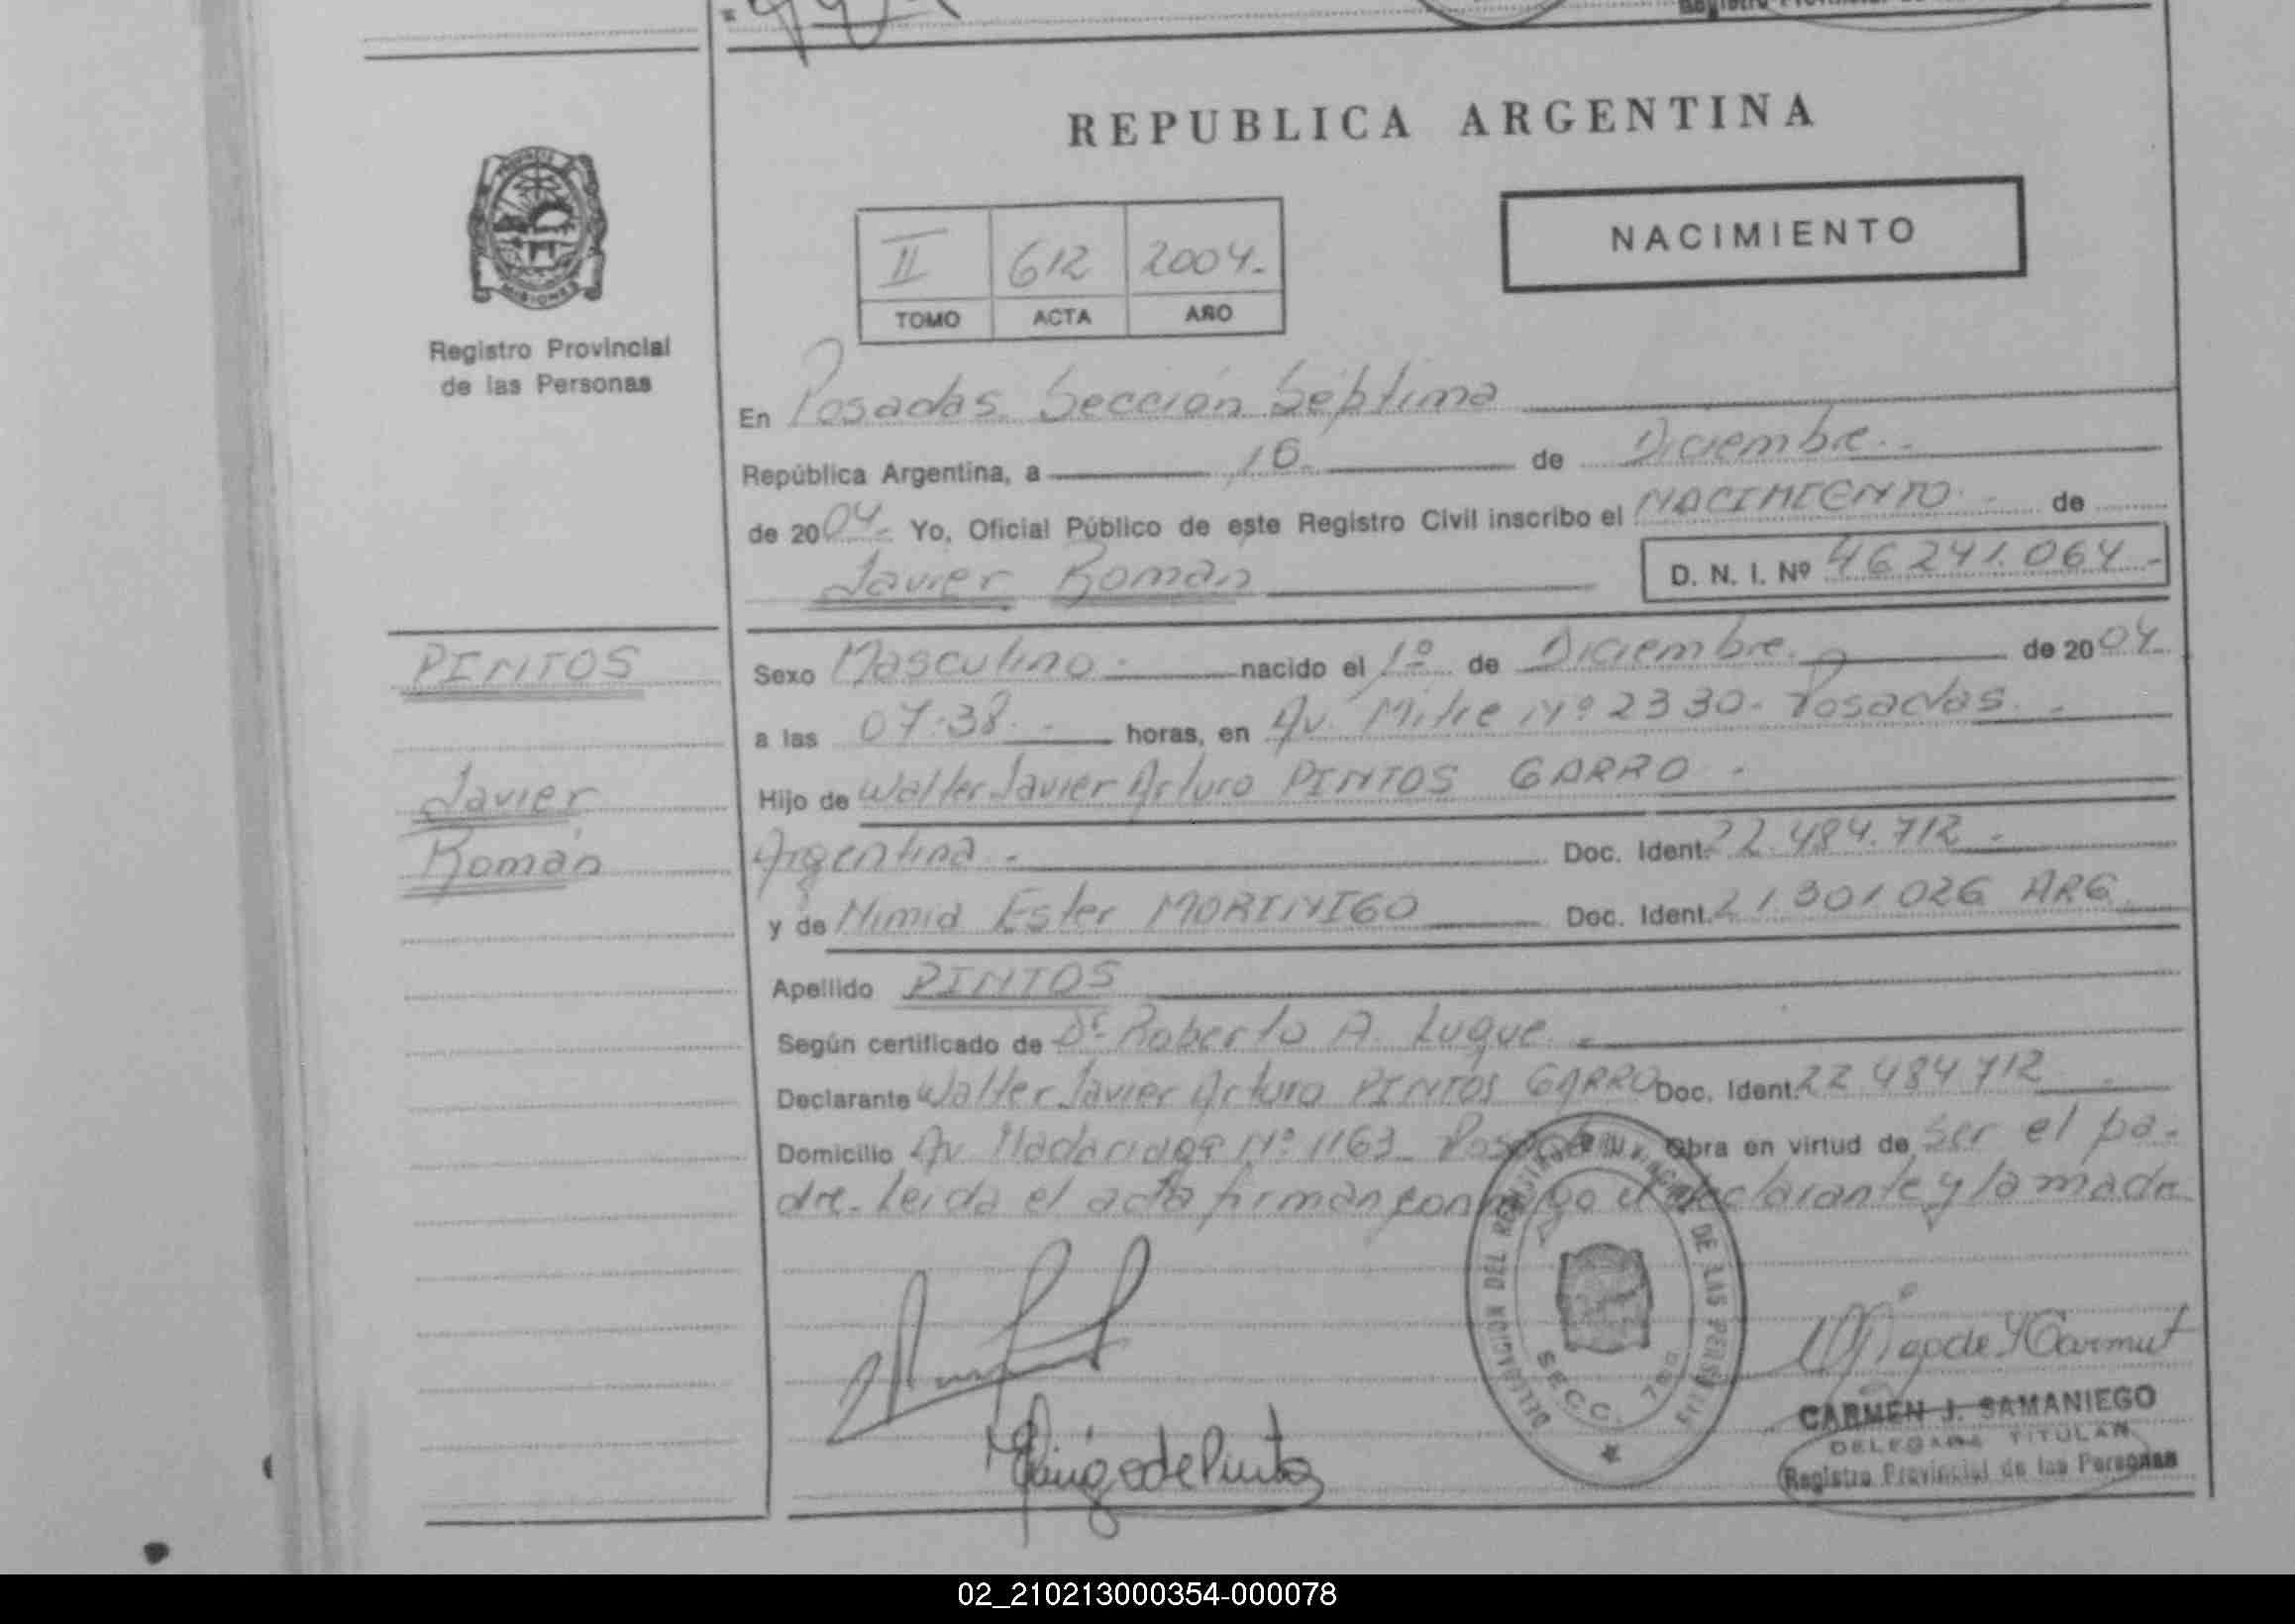 REPUBLICA ARGENTINA
NACIMIENTO
II 612 2004.-
TOMO ACTA AÑO
MISIONES
Registro Provincial
de las Personas
En Posadas Sección Séptima
República Argentina, a 16 de Diciembre.-
de 2004.- Yo, Oficial Público de este Registro Civil inscribo el NACIMIENTO.- de
Javier Román D. N. I. Nº 46 241.064.-
PINTOS
Javier
Román
Sexo Masculino.- nacido el 1º de Diciembre. de 2004
a las 07:38.- horas, en Av. Mitre Nº 2330- Posadas.-
Hijo de Walter Javier Arturo PINTOS GARRO.-
Argentina.- Doc. Ident. 22.484.712.-
y de Nimia Ester MORINIGO Doc. Ident. 21301026 ARG.
Apellido PINTOS
Según certificado de Dr. Roberto A. Luque.-
Declarante Walter Javier Arturo PINTOS GARRO Doc. Ident. 22 484 712.-
Domicilio Av Madariaga Nº 1163- Obra en virtud de ser el pa-
dre.- Leida el acta firman conmigo el declarante y la madre
DELEGACION DEL REGISTRO PROVINCIAL DE LAS PERSONAS
SECC. 7ma
CARMEN J. SAMANIEGO
DELEGADA TITULAR
Registro Provincial de las Personas
02_210213000354-000078